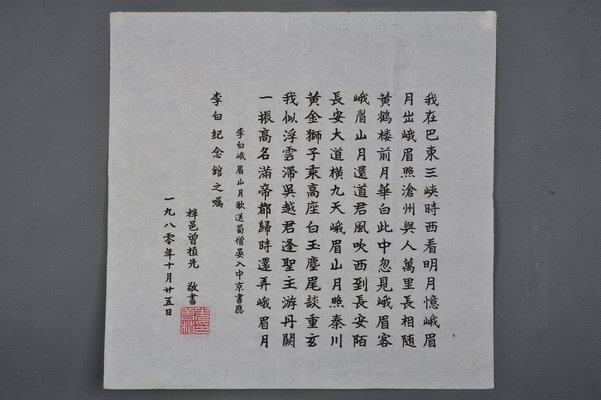 我在巴東三峽時西看明月憶峨眉
月出峨眉照滄州與人萬里長相随
黃鶴楼前月華白此中忽見峨眉客
峨眉山月還道君風吹西到長安陌
長安大道橫九天峨眉山月照秦川
黃金獅子乘高座白玉麈尾談重玄
我似浮雲滯吳越君逢聖主游丹闕
一振高名滿帝都歸時還弄峨眉月
李白峨眉山月歌送蜀僧晏入中京書應
李白紀念舘之囑
梓邑曾植先 敬書
一九八〇年十月廿五日